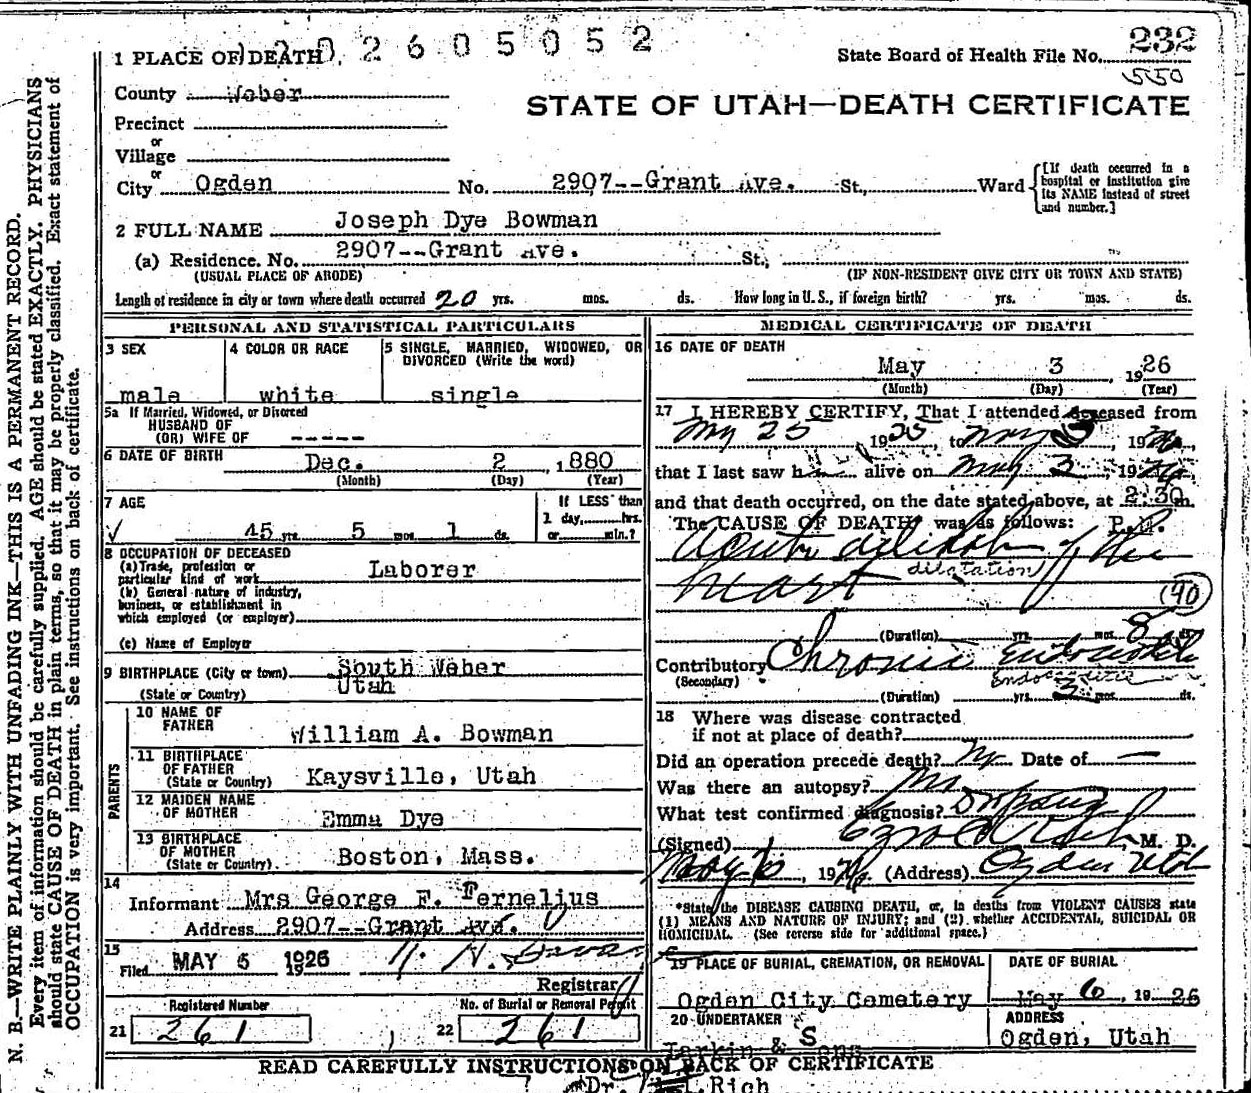 2605052
1 PLACE OF DEATH
State Board of Health File No. 232
550
County Weber
STATE OF UTAH—DEATH CERTIFICATE
Precinct
or
Village
or
City Ogden No. 2907--Grant Ave. St., Ward
[If death occurred in a hospital or institution give its NAME instead of street and number.]
2 FULL NAME Joseph Dye Bowman
(a) Residence. No. 2907--Grant Ave. St.,
(USUAL PLACE OF ABODE) (IF NON-RESIDENT GIVE CITY OR TOWN AND STATE)
Length of residence in city or town where death occurred 20 yrs. mos. ds. How long in U. S., if foreign birth? yrs. mos. ds.
PERSONAL AND STATISTICAL PARTICULARS
3 SEX
male
4 COLOR OR RACE
white
5 SINGLE, MARRIED, WIDOWED, OR DIVORCED (Write the word)
single
5a If Married, Widowed, or Divorced
HUSBAND OF
(OR) WIFE OF -----
6 DATE OF BIRTH Dec. 2 , 1880
(Month) (Day) (Year)
7 AGE
45 yrs. 5 mos. 1 ds.
If LESS than
1 day, hrs.
or min.?
8 OCCUPATION OF DECEASED
(a) Trade, profession or
particular kind of work Laborer
(b) General nature of industry,
business, or establishment in
which employed (or employer)
(c) Name of Employer
9 BIRTHPLACE (City or town) South Weber
(State or Country) Utah
PARENTS
10 NAME OF
FATHER William A. Bowman
11 BIRTHPLACE
OF FATHER
(State or Country) Kaysville, Utah
12 MAIDEN NAME
OF MOTHER Emma Dye
13 BIRTHPLACE
OF MOTHER
(State or Country) Boston, Mass.
14
Informant Mrs George F. Fernelius
Address 2907--Grant Ave.
15
Filed MAY 6 1926
Registrar
Registered Number
21 261
No. of Burial or Removal Permit
22 261
MEDICAL CERTIFICATE OF DEATH
16 DATE OF DEATH
May 3 , 1926
(Month) (Day) (Year)
17 I HEREBY CERTIFY, That I attended deceased from
May 25 1925, to May 3, 1926,
that I last saw h alive on May 3, 1926,
and that death occurred, on the date stated above, at 2:30 m.
The CAUSE OF DEATH* was as follows: P.M.
Acute dilitation of the
dilatation
heart
(90)
(Duration) yrs. mos. 8 ds.
Contributory Chronic Endocarditis
(Secondary) Endocarditis
(Duration) yrs. 3 mos. ds.
18 Where was disease contracted
if not at place of death?
Did an operation precede death? No Date of —
Was there an autopsy? No
What test confirmed diagnosis?
(Signed) Rich, M. D.
May 6, 1926 (Address) Ogden Utah
*State the DISEASE CAUSING DEATH, or, in deaths from VIOLENT CAUSES state
(1) MEANS AND NATURE OF INJURY; and (2) whether ACCIDENTAL, SUICIDAL OR
HOMICIDAL. (See reverse side for additional space.)
19 PLACE OF BURIAL, CREMATION, OR REMOVAL
Ogden City Cemetery
DATE OF BURIAL
May 6, 1926
20 UNDERTAKER
Larkin & Sons
ADDRESS
Ogden, Utah
READ CAREFULLY INSTRUCTIONS ON BACK OF CERTIFICATE
Dr. Rich
N. B.—WRITE PLAINLY WITH UNFADING INK—THIS IS A PERMANENT RECORD.
Every item of information should be carefully supplied. AGE should be stated EXACTLY. PHYSICIANS
should state CAUSE OF DEATH in plain terms, so that it may be properly classified. Exact statement of
OCCUPATION is very important. See instructions on back of certificate.